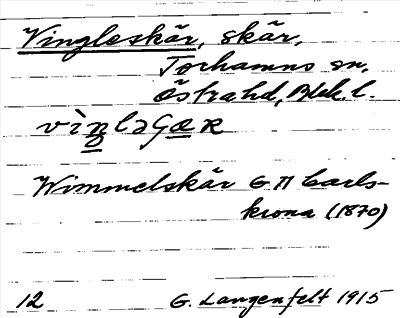 Vingleskär, skär,
Torhamns sn,
Östra hd, Blek. l.
vìŋləʂæR
Wimmelskär G Π Carls-
krona (1870)
12 G. Langenfelt 1915